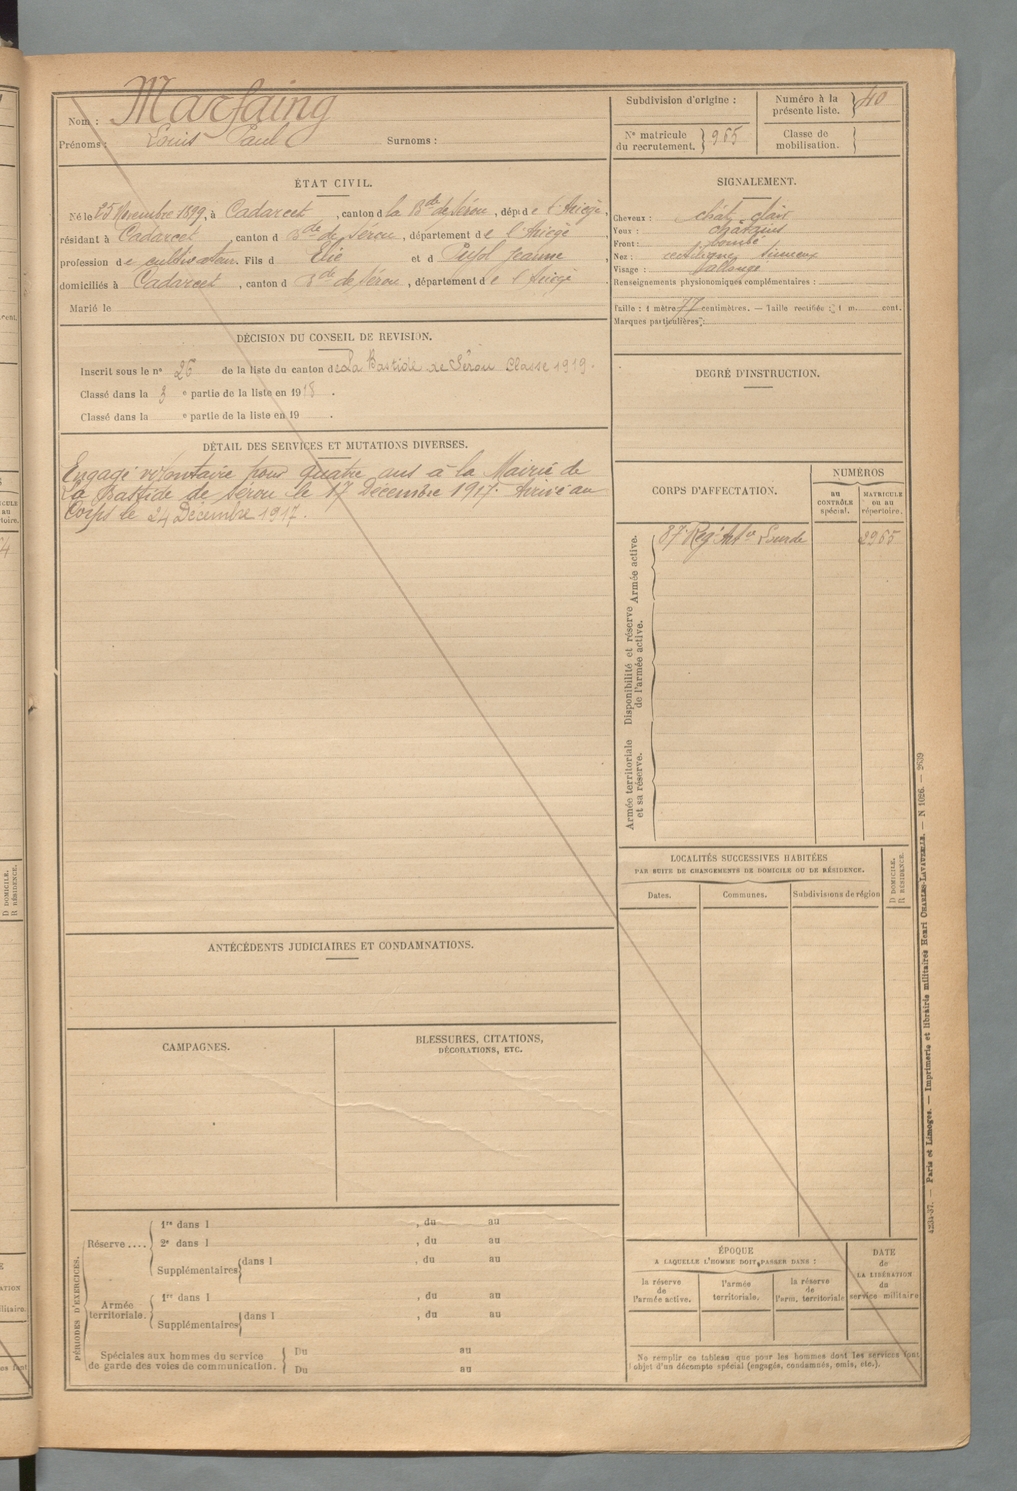 Nom : Marfaing
Prénoms : Louis Paul Surnoms :
Subdivision d'origine :
Numéro à la présente liste. } 40
N° matricule du recrutement. } 965
Classe de mobilisation. }
ÉTAT CIVIL.
Né le 25 Novembre 1899, à Cadarcet, canton d la Bde de Sérou, dépt d e l'Ariège,
résidant à Cadarcet, canton d Bde de Sérou, département d e l'Ariège,
profession d e cultivateur. Fils d Elie et d Pujol Jeanne,
domiciliés à Cadarcet, canton d Bde de Sérou, département d e l'Ariège
Marié le
SIGNALEMENT.
Cheveux : chât. clair
Yeux : châtains
Front : bombé
Nez : rectiligne, sinueux
Visage : allongé
Renseignements physionomiques complémentaires :
Taille : 1 mètre 77 centimètres. — Taille rectifiée : 1 m. cent.
Marques particulières :
DÉCISION DU CONSEIL DE REVISION.
Inscrit sous le n° 26 de la liste du canton de La Bastide de Sérou Classe 1919.
Classé dans la 3 e partie de la liste en 1918.
Classé dans la e partie de la liste en 19 .
DEGRÉ D'INSTRUCTION.
DÉTAIL DES SERVICES ET MUTATIONS DIVERSES.
Engagé volontaire pour quatre ans à la Mairie de
La Bastide de Sérou le 17 Décembre 1917. Arrivé au
Corps le 24 Décembre 1917.
CORPS D'AFFECTATION.
NUMÉROS
au CONTRÔLE spécial.
MATRICULE ou au répertoire.
Armée active.
87 Régt Artie Lourde 2965
Disponibilité et réserve de l'armée active.
Armée territoriale et sa réserve.
LOCALITÉS SUCCESSIVES HABITÉES
PAR SUITE DE CHANGEMENTS DE DOMICILE OU DE RÉSIDENCE.
Dates. Communes. Subdivisions de région
D DOMICILE.
R RÉSIDENCE.
ANTÉCÉDENTS JUDICIAIRES ET CONDAMNATIONS.
CAMPAGNES.
BLESSURES, CITATIONS,
DÉCORATIONS, ETC.
PÉRIODES D'EXERCICES.
Réserve .... { 1re dans l , du au
2e dans l , du au
Supplémentaires { dans l , du au
Armée territoriale. { 1re dans l , du au
Supplémentaires { dans l , du au
Spéciales aux hommes du service
de garde des voies de communication. { Du au
Du au
ÉPOQUE
A LAQUELLE L'HOMME DOIT PASSER DANS :
la réserve de l'armée active.
l'armée territoriale.
la réserve de l'arm. territoriale
DATE
de
LA LIBÉRATION
du
service militaire
Ne remplir ce tableau que pour les hommes dont les services font
l'objet d'un décompte spécial (engagés, condamnés, omis, etc.).
4234-37. — Paris et Limoges. — Imprimerie et librairie militaires Henri CHARLES-LAVAUZELLE. — N 1026. — 2639